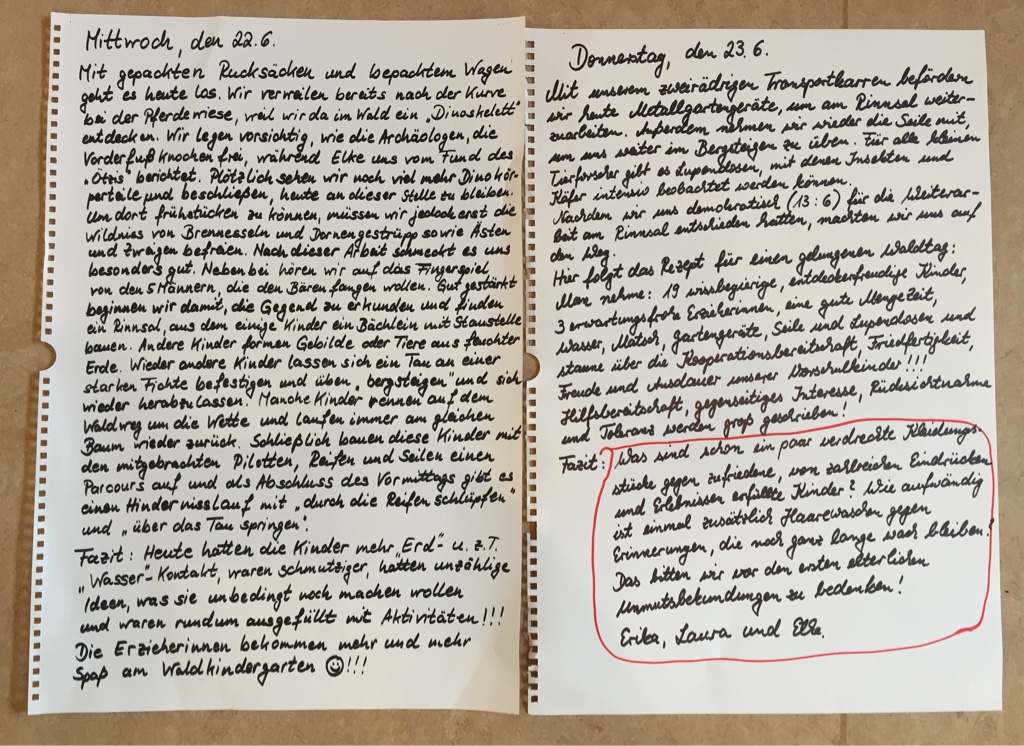 Mittwoch, den 22.6.
Mit gepackten Rucksäcken und bepacktem Wagen
geht es heute los. Wir verweilen bereits nach der Kurve
bei der Pferdewiese, weil wir da im Wald ein „Dinoskelett"
entdecken. Wir legen vorsichtig, wie die Archäologen, die
Vorderfußknochen frei, während Elke uns vom Fund des
„Ötzis" berichtet. Plötzlich sehen wir noch viel mehr Dinokör-
perteile und beschließen, heute an dieser Stelle zu bleiben.
Um dort frühstücken zu können, müssen wir jedoch erst die
Wildnis von Brennesseln und Dornengestrüpp sowie Ästen
und Zweigen befreien. Nach dieser Arbeit schmeckt es uns
besonders gut. Nebenbei hören wir auf das Fingerspiel
von den 5 Männern, die den Bären fangen wollen. Gut gestärkt
beginnen wir damit, die Gegend zu erkunden und finden
ein Rinnsal, aus dem einige Kinder ein Bächlein mit Staustelle
bauen. Andere Kinder formen Gebilde oder Tiere aus feuchter
Erde. Wieder andere Kinder lassen sich ein Tau an einer
starken Fichte befestigen und üben „bergsteigen" und sich
wieder herabzulassen. Manche Kinder rennen auf dem
Waldweg um die Wette und laufen immer am gleichen
Baum wieder zurück. Schließlich bauen diese Kinder mit
den mitgebrachten Pilotten, Reifen und Seilen einen
Parcours auf und als Abschluss des Vormittags gibt es
einen Hindernisslauf mit „durch die Reifen schlüpfen"
und „über das Tau springen".
Fazit: Heute hatten die Kinder mehr „Erd"- u. z.T.
"Wasser"-Kontakt, waren schmutziger, hatten unzählige
Ideen, was sie unbedingt noch machen wollen
und waren rundum ausgefüllt mit Aktivitäten!!!
Die Erzieherinnen bekommen mehr und mehr
Spaß am Waldkindergarten ☺!!!
Donnerstag, den 23.6.
Mit unserem zweirädrigen Transportkarren befördern
wir heute Metallgartengeräte, um am Rinnsal weiter-
zuarbeiten. Außerdem nehmen wir wieder die Seile mit,
um uns weiter im Bergsteigen zu üben. Für alle kleinen
Tierforscher gibt es Lupendosen, mit denen Insekten und
Käfer intensiv beobachtet werden können.
Nachdem wir uns demokratisch (13:6) für die Weiterar-
beit am Rinnsal entschieden hatten, machten wir uns auf
den Weg.
Hier folgt das Rezept für einen gelungenen Waldtag:
Man nehme: 19 wissbegierige, entdeckerfreudige Kinder,
3 erwartungsfrohe Erzieherinnen, eine gute Menge Zeit,
Wasser, Matsch, Gartengeräte, Seile und Lupendosen und
staune über die Kooperationsbereitschaft, Friedfertigkeit,
Freude und Ausdauer unserer Vorschulkinder!!!
Hilfsbereitschaft, gegenseitiges Interesse, Rücksichtnahme
und Toleranz werden groß geschrieben!
Fazit: Was sind schon ein paar verdreckte Kleidungs-
stücke gegen zufriedene, von zahlreichen Eindrücken
und Erlebnissen erfüllte Kinder? Wie aufwändig
ist einmal zusätzlich Haarewaschen gegen
Erinnerungen, die noch ganz lange wach bleiben?
Das bitten wir vor den ersten elterlichen
Unmutsbekundungen zu bedenken!
Erika, Laura und Elke.